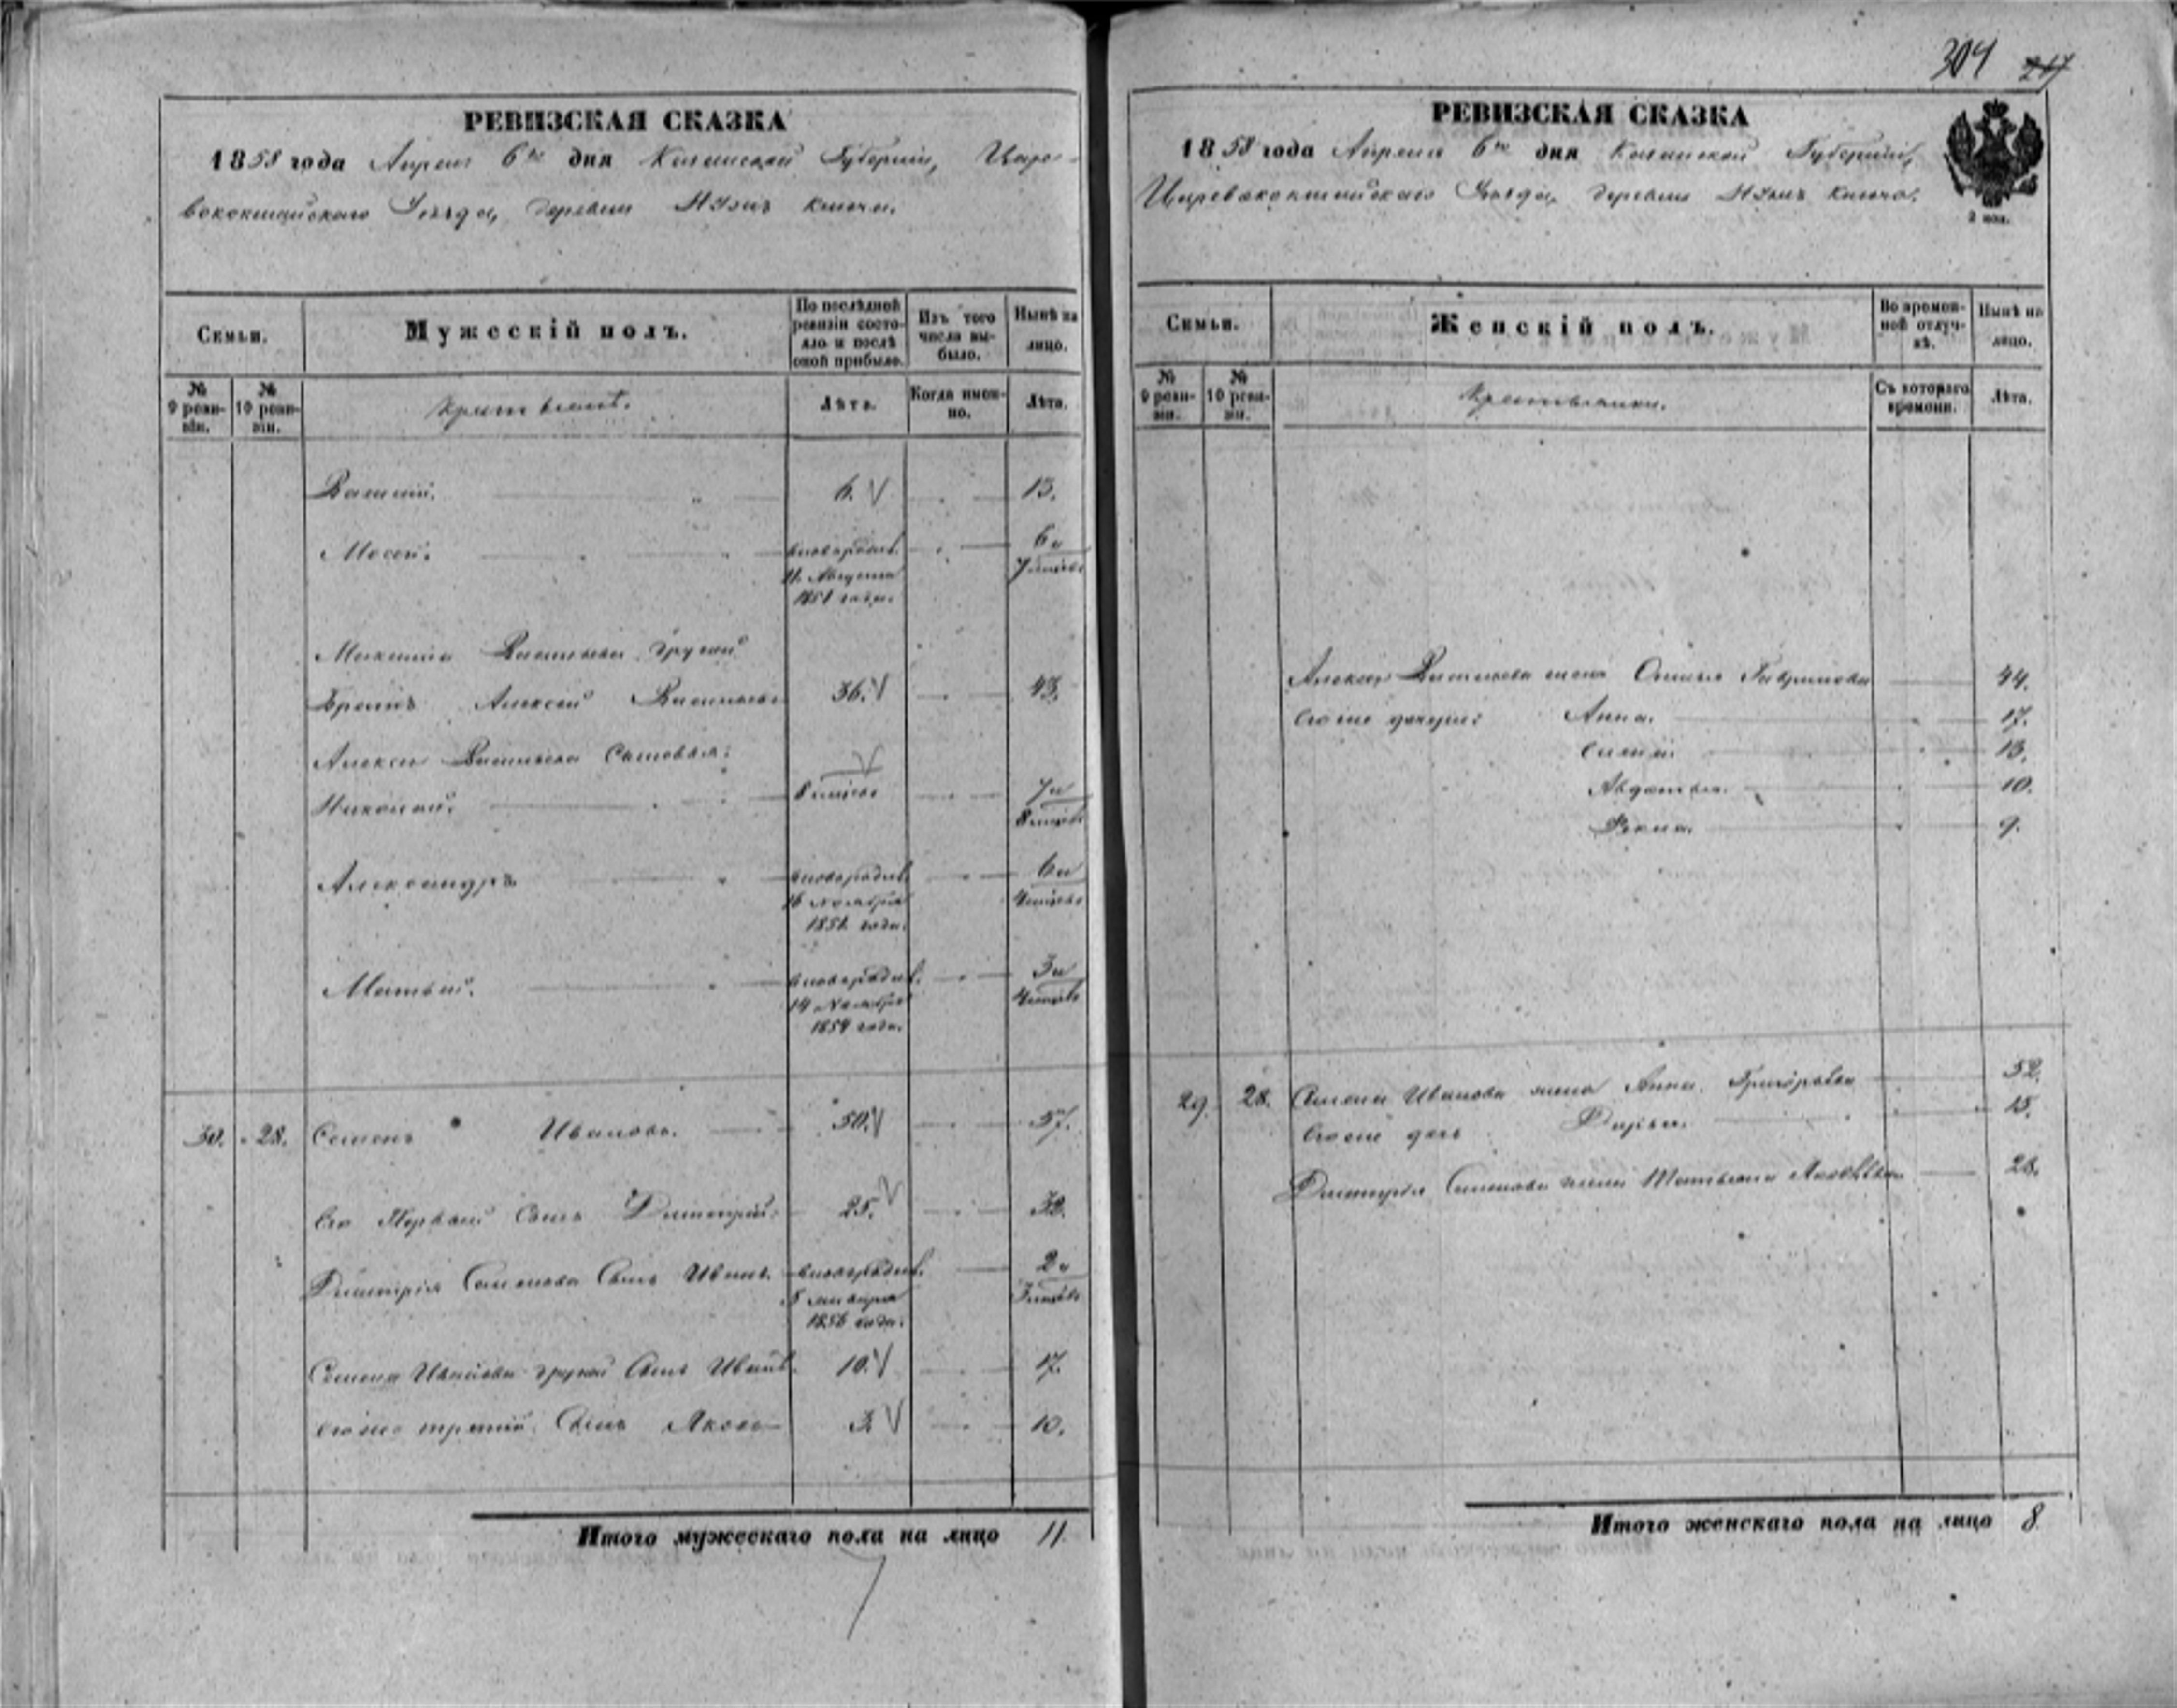 304 217
РЕВИЗСКАЯ СКАЗКА
1858 года Апреля 6го дня Казанской Губернии, Царе-
вококшайскаго Уезда, деревни Ключа.
Семьи.
Мужескій полъ.
По послѣдней ревизіи состояло и послѣ оной прибыло.
Изъ того числа выбыло.
Нынѣ на лицо.
№ 9 ревизіи.
№ 10 ревизіи.
Крестьяне.
Лѣта.
Когда именно.
Лѣта.
6. 13.
Мосей. новорожд. 6 и
11 Августа 7 месяц
1851 года.
Максима Васильева другой
Братъ Алексей Васильевъ 36. 43.
Алексея Васильева Сыновья:
Николай. 8 месяц 7 и
8 месяц
Александръ новорожд. 6 и
16 Ноября 4 месяц
1851 года.
Матвей. новорожд. 3 и
14 Ноября 4 месяц
1854 года.
30. 28. Семенъ Ивановъ. 50. 57.
Его Первый Сынъ Дмитрий. 25. 32.
Дмитрія Семенова Сынъ Иванъ. новорожд. 2 и
8 января 3 месяц
1856 года.
Семена Иванова другой Сынъ Иванъ 10. 17.
Его же третий Сынъ Яковъ 3 10.
Итого мужескаго пола на лицо 11.
РЕВИЗСКАЯ СКАЗКА
1858 года Апреля 6го дня Казанской Губернии,
Царевококшайскаго Уезда, деревни Ключа.
2 коп.
Семьи.
Женскій полъ.
Во временной отлучкѣ.
Нынѣ на лицо.
№ 9 ревизіи.
№ 10 ревизіи.
Крестьянки.
Съ котораго времени.
Лѣта.
Алексея Васильева жена Гаврилова 44.
Его же дочери: Анна. 17.
13.
Авдотья. 10.
Фекла. 9.
29. 28. Семена Иванова жена Анна Григорьева 52.
Его же дочь Дарья. 15.
Дмитрія Семенова жена Татьяна Яковлева 28.
Итого женскаго пола на лицо 8